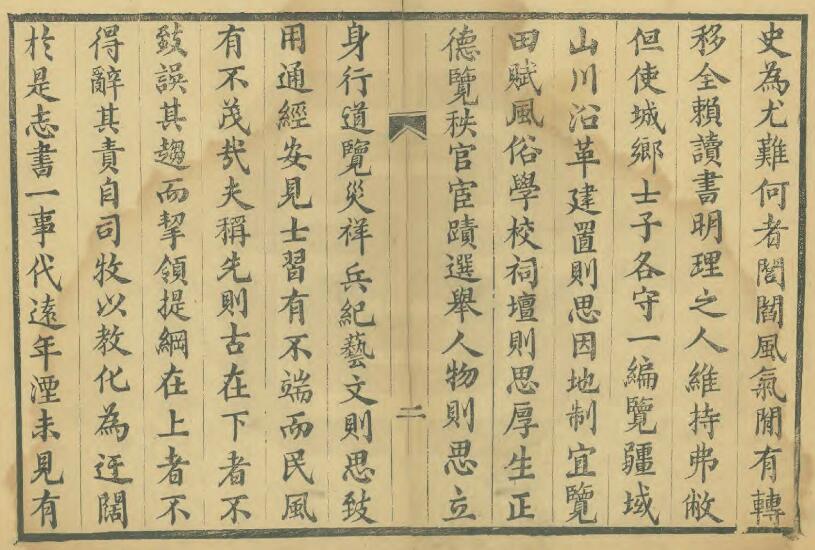 史為尤難何者閭閻風氣閒有轉
移全賴讀書明理之人維持弗敝
但使城鄉士子各守一編覽疆域
山川沿革建置則思因地制宜覽
田賦風俗學校祠壇則思厚生正
德覽秩官宦蹟選舉人物則思立
二
身行道覽災祥兵紀藝文則思致
用通經安見士習有不端而民風
有不茂㦲夫稱先則古在下者不
致誤其趨而挈領提綱在上者不
得辭其責自司牧以教化為迂闊
於是志書一事代遠年湮未見有